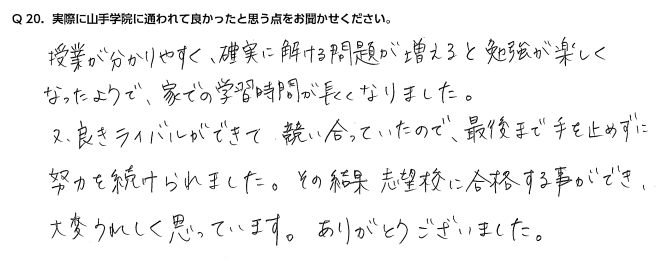 Q 20. 実際に山手学院に通われて良かったと思う点をお聞かせください。
授業が分かりやすく、確実に解ける問題が増えると勉強が楽しく
なったようで、家での学習時間が長くなりました。
又、良きライバルができて 競い合っていたので、最後まで手を止めずに
努力を続けられました。その結果 志望校に合格する事ができ、
大変うれしく思っています。ありがとうございました。